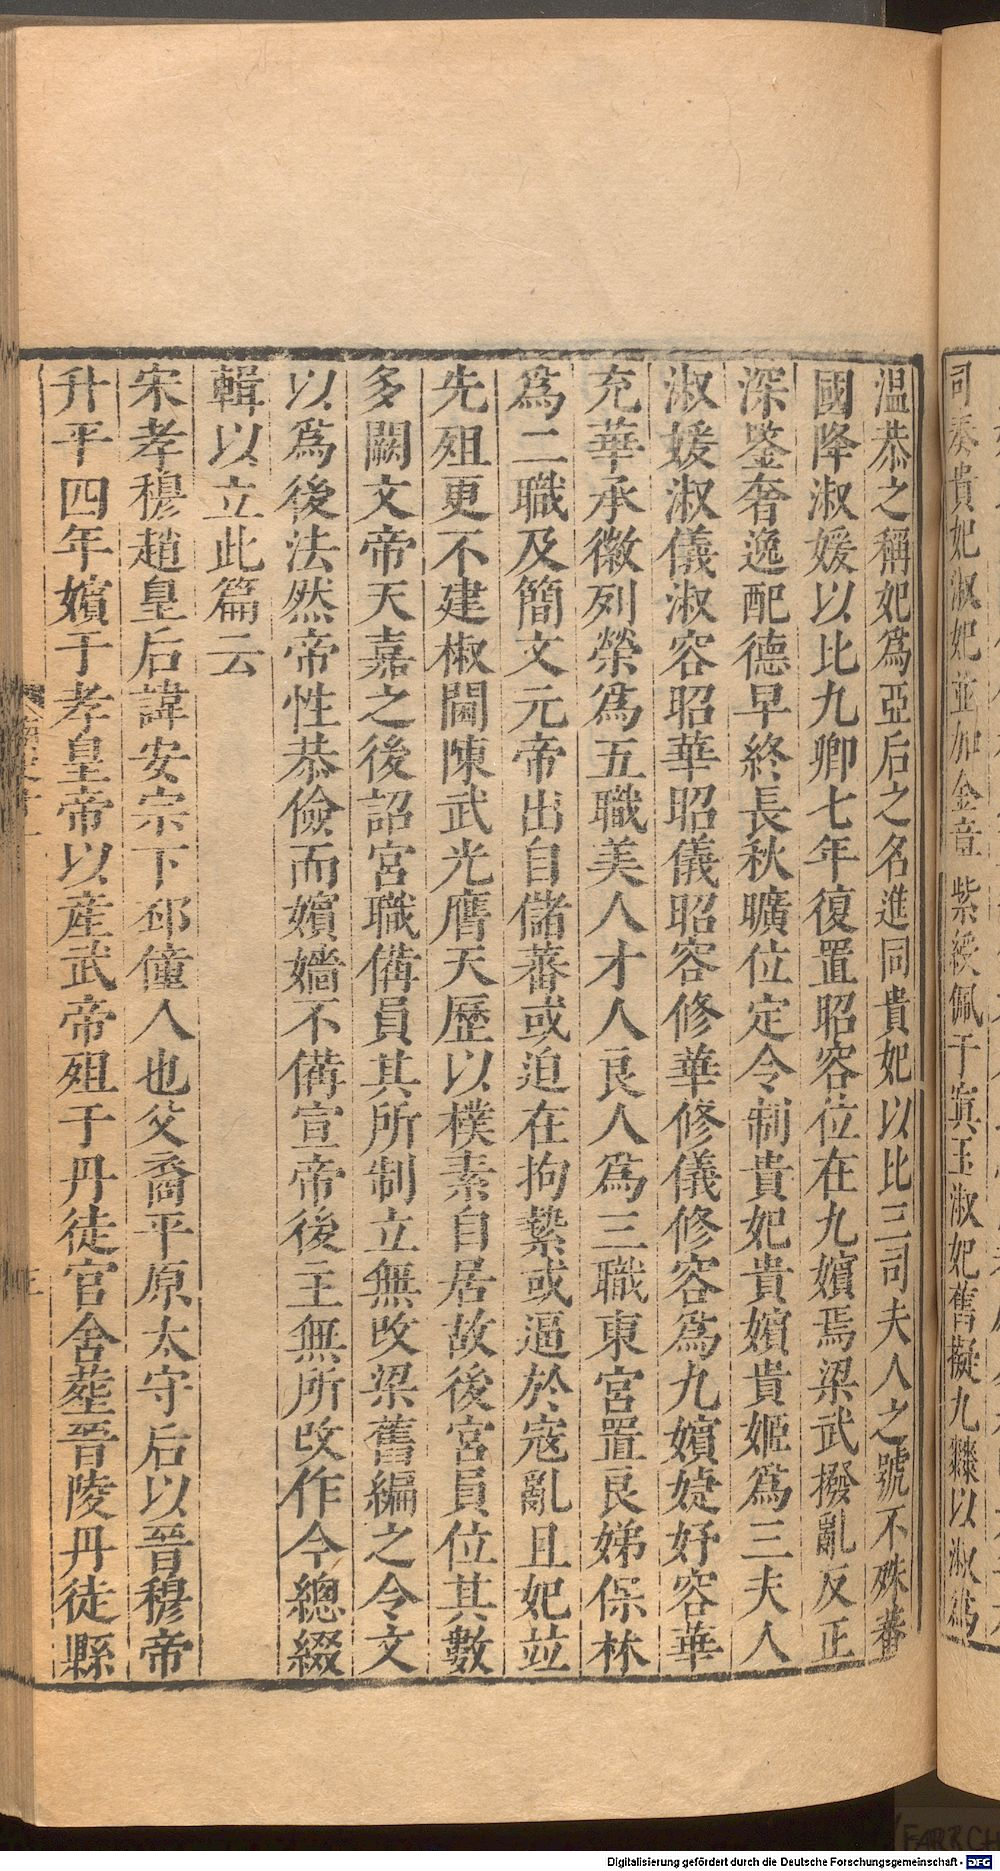 司奏貴妃淑妃並加金章紫綬佩于窴玉淑妃舊擬九棘以淑爲
温恭之稱妃爲亞后之名進同貴妃以比三司夫人之號不殊蕃
國降淑媛以比九卿七年復置昭容位在九嬪焉梁武撥亂反正
深鑒奢逸配德早終長秋曠位定令制貴妃貴嬪貴姬爲三夫人
淑媛淑儀淑容昭華昭儀昭容修華修儀修容爲九嬪婕妤容華
充華承徽列榮爲五職美人才人良人爲三職東宮置良娣保林
爲二職及簡文元帝出自儲蕃或迫在拘縶或逼於寇亂且妃竝
先殂更不建椒閫陳武光膺天歷以樸素自居故後宮員位其數
多闕文帝天嘉之後詔宮職備員其所制立無改梁舊編之令文
以爲後法然帝性恭儉而嬪嬙不備宣帝後主無所改作今總綴
輯以立此篇云
宋孝穆趙皇后諱安宗下邳僮人也父裔平原太守后以晉穆帝
升平四年嬪于孝皇帝以産武帝殂于丹徒官舍葬晉陵丹徒縣
Digitalisierung gefördert durch die Deutsche Forschungsgemeinschaft - DFG